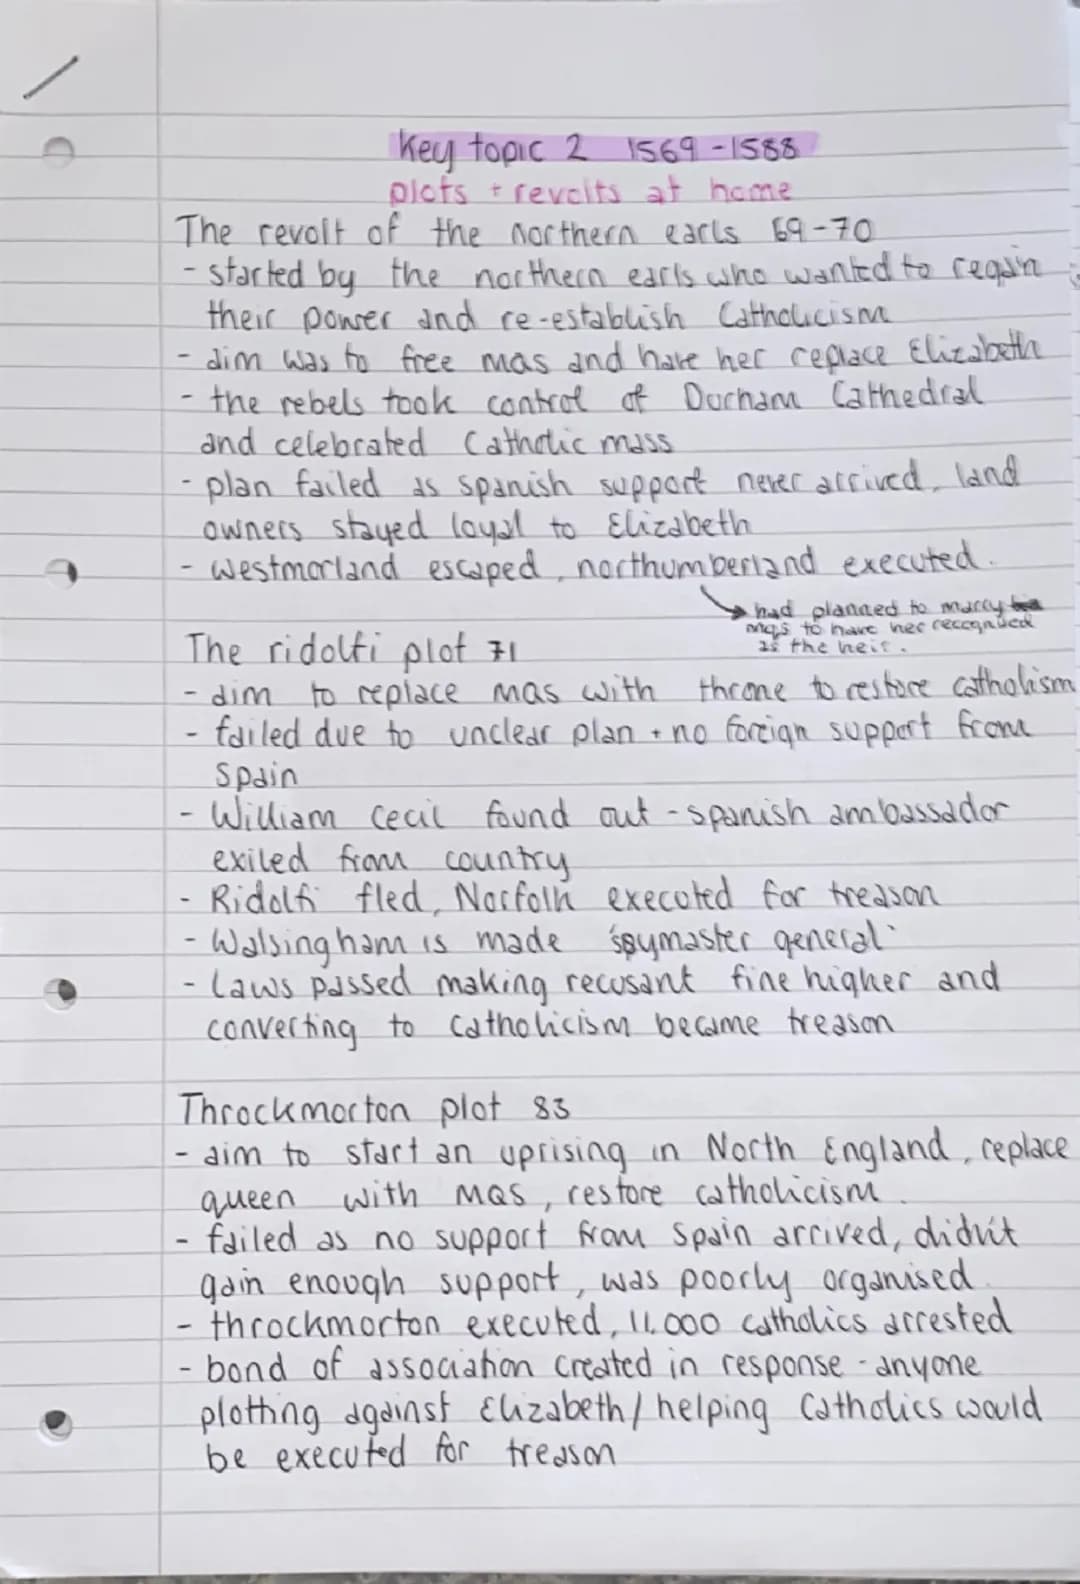 Key topic 2 1569-1588
plots + revolts at home
The revolt of the northern earls 69-70
- started by the northern earls who wanted to regain
their power and re-establish Catholicism
- aim was to free mqs and have her replace Elizabeth
- the rebels took control of Durham Cathedral
and celebrated Catholic mass
- plan failed as spanish support never arrived, land
owners stayed loyal to Elizabeth
- westmorland escaped, northumberland executed.
had planned to marry
mqs to have her recognised
as the heir.
The ridolfi plot 71
- aim to replace mqs with throne to restore catholism
- failed due to unclear plan + no foreign support from
Spain
- William Cecil found out - spanish ambassador
exiled from country
- Ridolfi fled, Norfolk executed for treason
- Walsingham is made 'spymaster general'
- Laws passed making recusant fine higher and
converting to catholicism became treason
Throckmorton plot 83
- aim to start an uprising in North England, replace
queen with MQS, restore catholicism.
- failed as no support from Spain arrived, didn't
gain enough support, was poorly organised.
- throckmorton executed, 11,000 catholics arrested
- bond of association created in response - anyone
plotting against Elizabeth/helping Catholics would
be executed for treason